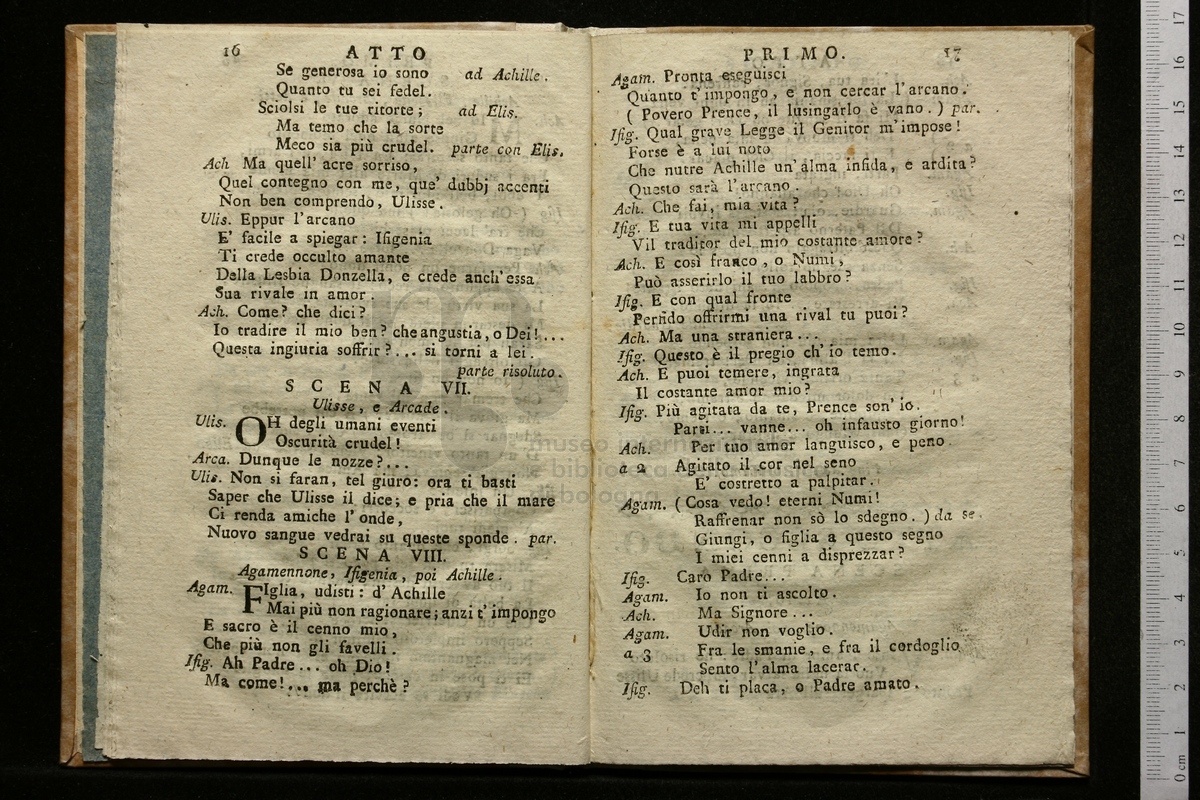 16 ATTO
Se generosa io sono ad Achille.
Quanto tu sei fedel.
Sciolsi le tue ritorte; ad Elis.
Ma temo che la sorte
Meco sia più crudel. parte con Elis.
Ach. Ma quell' acre sorriso,
Quel contegno con me, que' dubbj accenti
Non ben comprendo, Ulisse.
Ulis. Eppur l'arcano
E' facile a spiegar: Ifigenia
Ti crede occulto amante
Della Lesbia Donzella, e crede anch' essa
Sua rivale in amor.
Ach. Come? che dici?
Io tradire il mio ben? che angustia, o Dei!...
Questa ingiuria soffrir?... si torni a lei.
parte risoluto.
SCENA VII.
Ulisse, e Arcade.
Ulis. OH degli umani eventi
Oscurità crudel!
Arca. Dunque le nozze?...
Ulis. Non si faran, tel giuro: ora ti basti
Saper che Ulisse il dice; e pria che il mare
Ci renda amiche l'onde,
Nuovo sangue vedrai su queste sponde. par.
SCENA VIII.
Agamennone, Ifigenia, poi Achille.
Agam. FIglia, udisti: d' Achille
Mai più non ragionare; anzi t'impongo
E sacro è il cenno mio,
Che più non gli favelli.
Ifig. Ah Padre... oh Dio!
Ma come!... ma perchè?
PRIMO. 17
Agam. Pronta eseguisci
Quanto t'impongo, e non cercar l'arcano.
(Povero Prence, il lusingarlo è vano.) par.
Ifig. Qual grave Legge il Genitor m'impose!
Forse è a lui noto
Che nutre Achille un'alma infida, e ardita?
Questo sarà l'arcano.
Ach. Che fai, mia vita?
Ifig. E tua vita mi appelli
Vil traditor del mio costante amore?
Ach. E così franco, o Numi,
Può asserirlo il tuo labbro?
Ifig. E con qual fronte
Perfido offrirmi una rival tu puoi?
Ach. Ma una straniera...
Ifig. Questo è il pregio ch' io temo.
Ach. E puoi temere, ingrata
Il costante amor mio?
Ifig. Più agitata da te, Prence son' io.
Parti... vanne... oh infausto giorno!
Ach. Per tuo amor languisco, e peno.
a 2 Agitato il cor nel seno
E' costretto a palpitar.
Agam. (Cosa vedo! eterni Numi!
Raffrenar non sò lo sdegno.) da se.
Giungi, o figlia a questo segno
I miei cenni a disprezzar?
Ifig. Caro Padre...
Agam. Io non ti ascolto.
Ach. Ma Signore...
Agam. Udir non voglio.
a 3 Fra le smanie, e fra il cordoglio
Sento l'alma lacerar.
Ifig. Deh ti placa, o Padre amato.